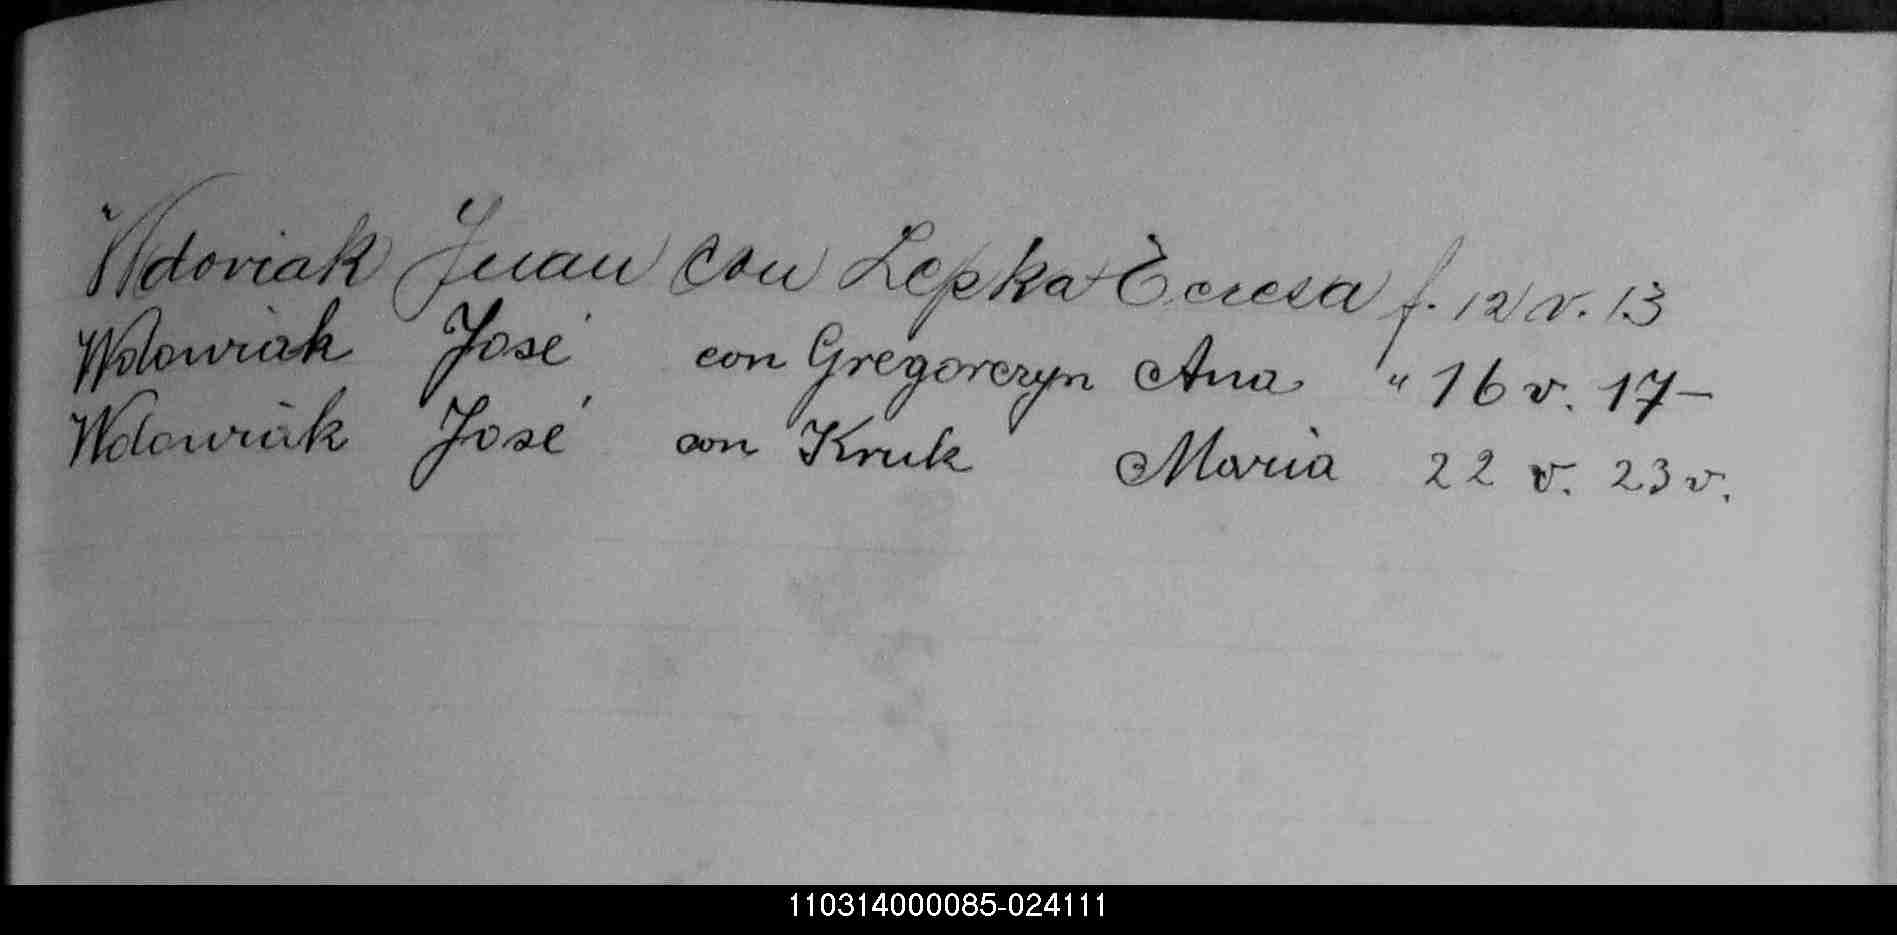 Wdoviak Juan con Lepka Teresa f. 12 v. 13
Wdowiak José con Gregorczyn Ana " 16 v. 17-
Wdowiak José con Kruk Maria 22 v. 23 v.
110314000085-024111